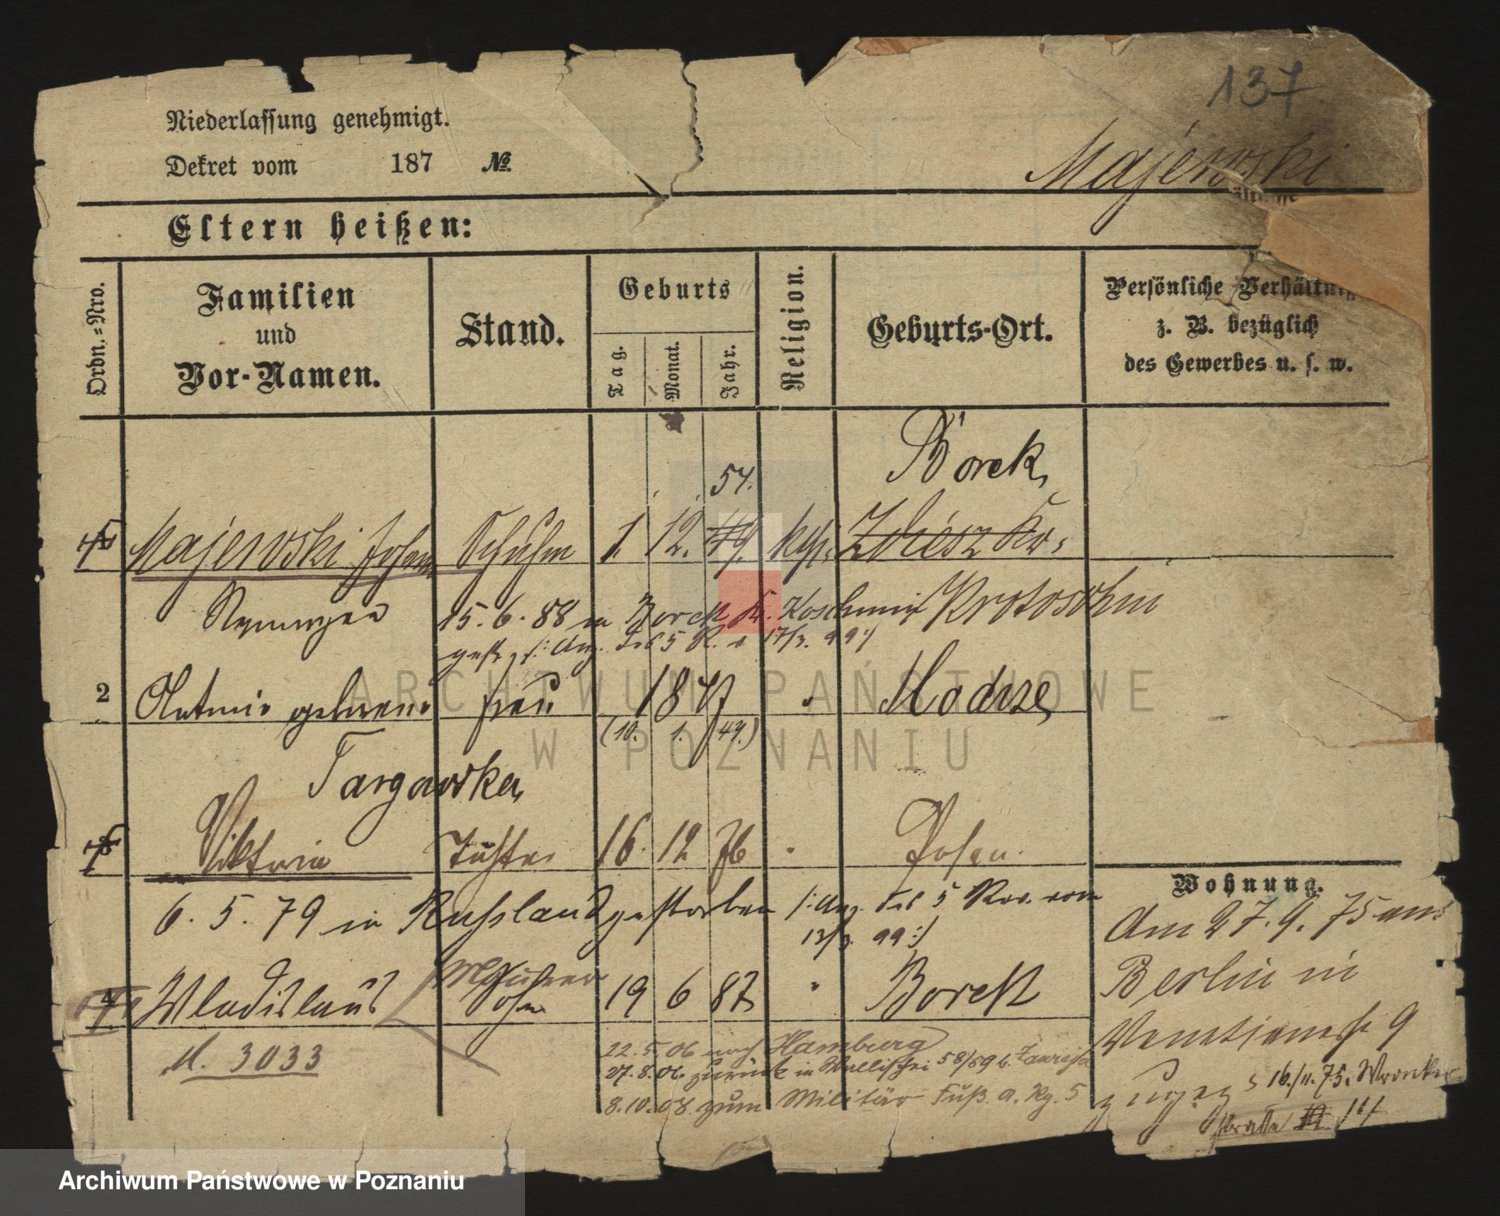 137
Niederlassung genehmigt.
Dekret vom 187 №.
Majewski
Eltern heißen:
Ordn.-Nro.
Familien
und
Vor-Namen.
Stand.
Geburts
Tag.
Monat.
Jahr.
Religion.
Geburts-Ort.
Persönliche Verhältn
z. B. bezüglich
des Gewerbes u. s. w.
Borek
54.
Majewski Johann Schuhm 1. 12. 49. kath. Zdiesz Kr.
15. 6. 88 in Borek Kr. Koschmin Krotoschin
gest. /: Anz. des 5 R. v 17/3. 99 :/
2 Antonie geborene Frau 1847 " Modrze
(10. 1. 49.)
Targowska
Viktoria Tochter 16. 12 76 " Posen.
6. 5. 79 in Russland gestorben /: Anz. des 5 Rev. vom
13/3. 99 :/
4 Wladislaus Sohn 19 6 87 " Borek
M. 3033
22. 5. 06 nach Hamburg
27. 8. 06 zurück in Wallischei 58/59 b.
8. 10. 08 zum Militär Fuß. a. Rg. 5
Wohnung.
Am 27. 9. 75 aus
Berlin in
Venetianerstr 9
zugez 16/11. 75. Wronker
straße 11
ARCHIWUM PAŃSTWOWE
W POZNANIU
Archiwum Państwowe w Poznaniu